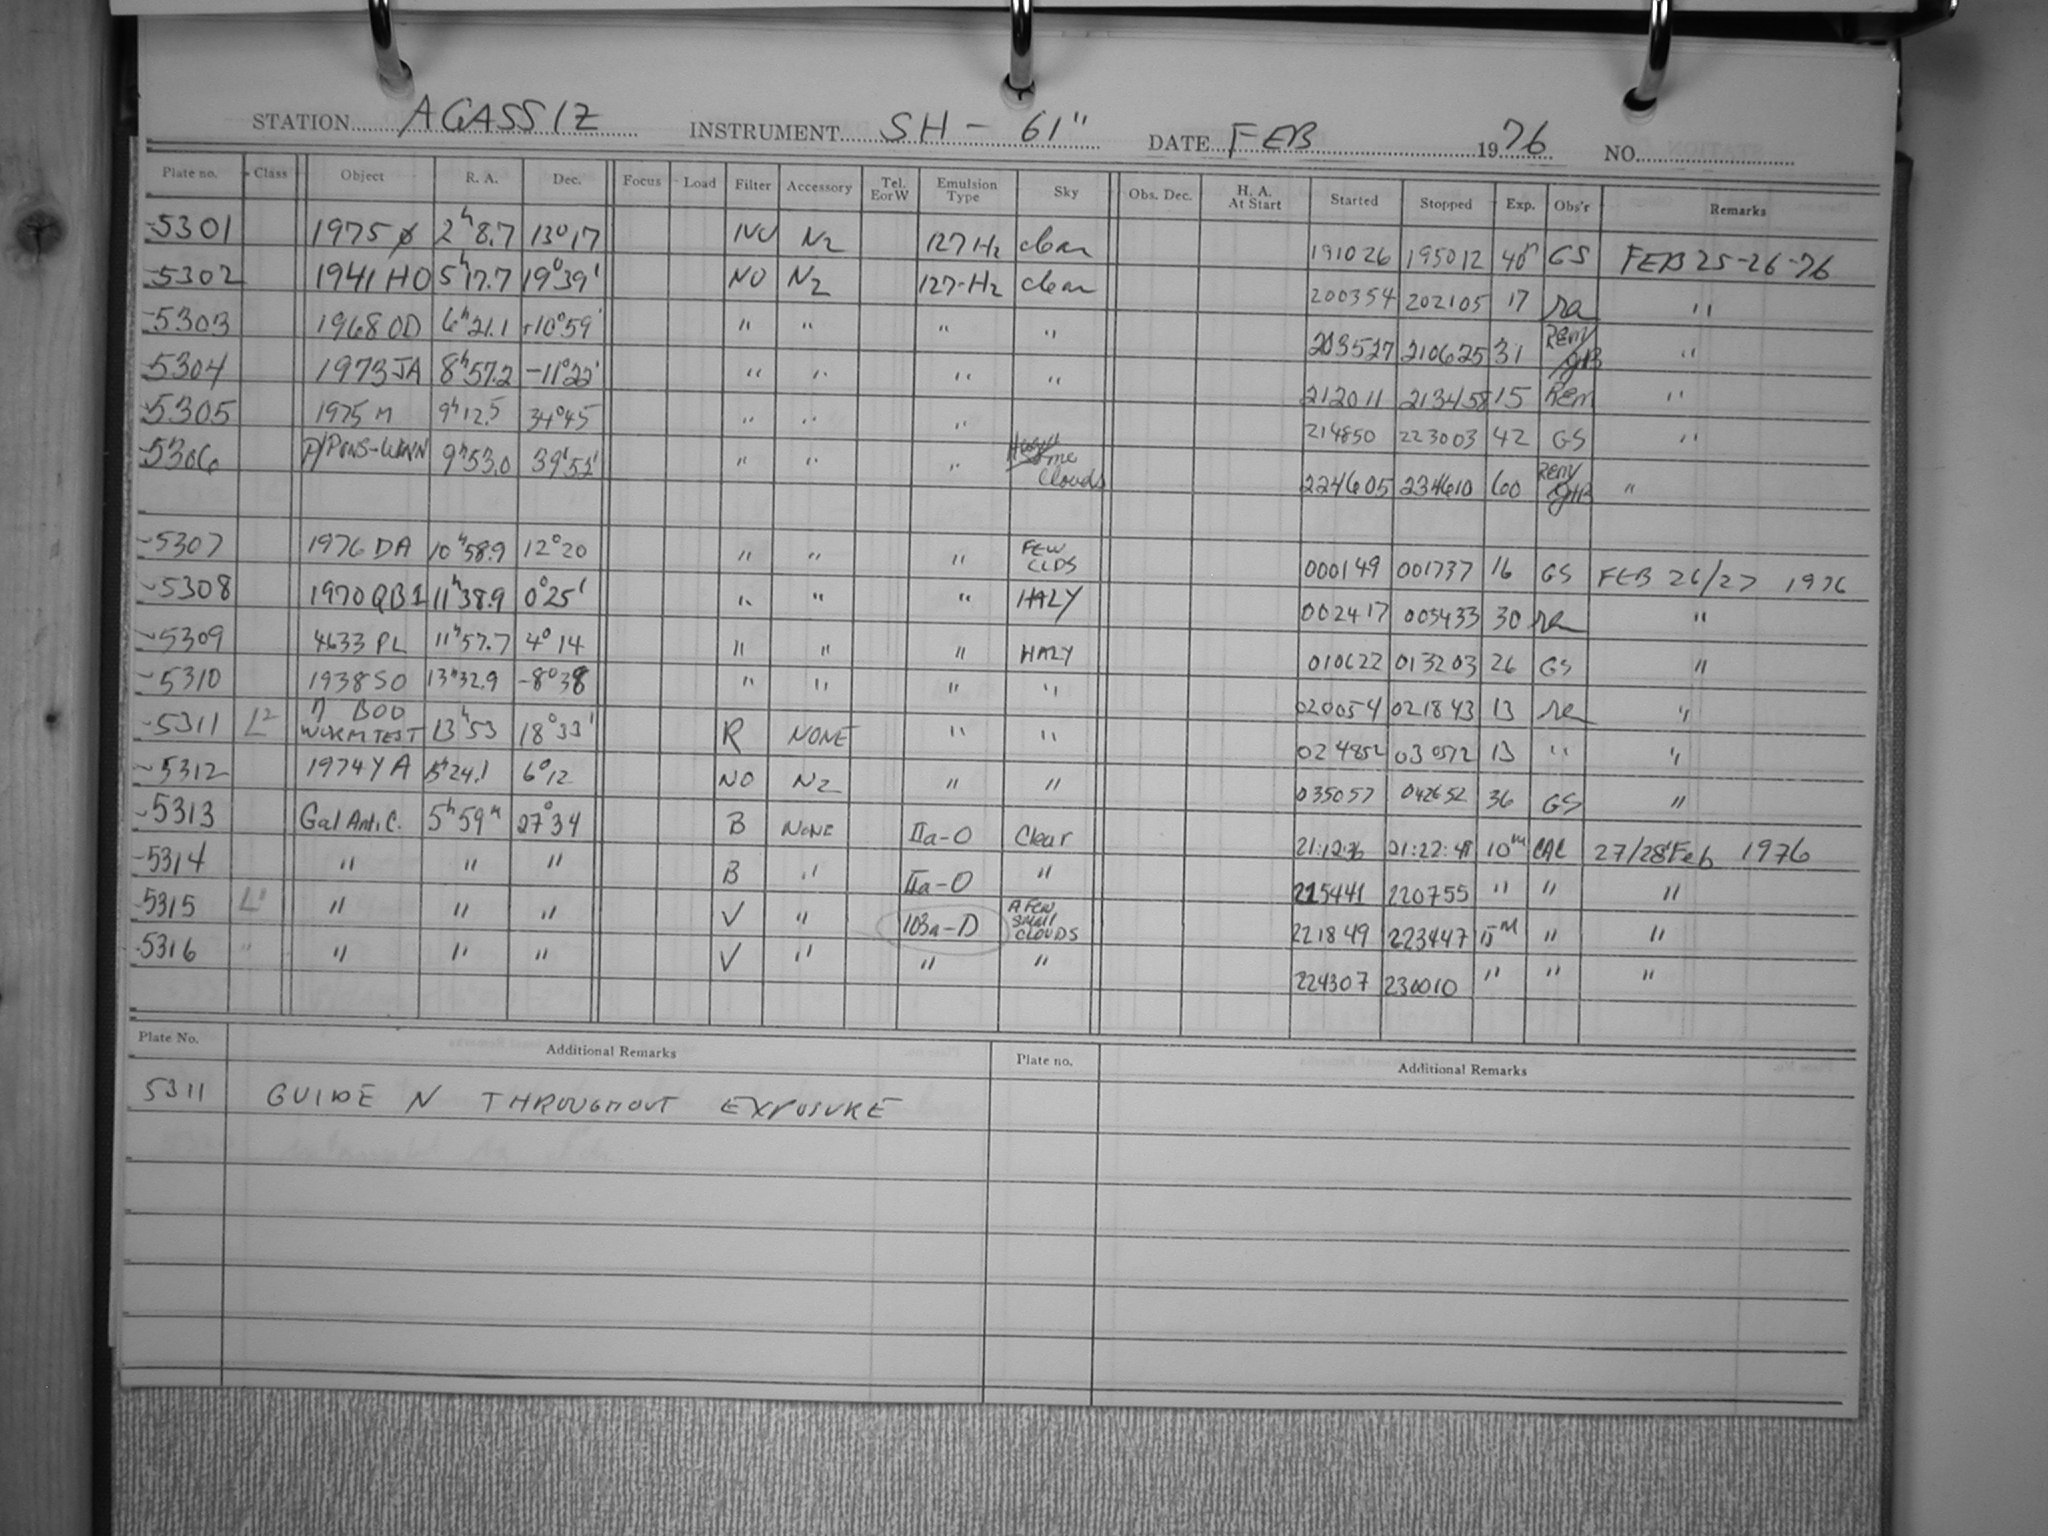 STATION AGASSIZ INSTRUMENT SH - 61" DATE FEB 1976 NO.
Plate no. Class Object R. A. Dec. Focus Load Filter Accessory Tel. EorW Emulsion Type Sky Obs. Dec. H. A. At Start Started Stopped Exp. Obs'r Remarks
-5301 1975 2h8.7 13°17 NO N2 127 H2 clear 191026 195012 40m GS FEB 25-26-76
-5302 1941 HO 5h17.7 19°39' NO N2 127-H2 clear 200354 202105 17 ra "
-5303 1968 OD 6h21.1 +10°59' " " " " 203527 210625 31 Rem/JHB "
-5304 1973 JA 8h57.2 -11°22' " " " " 212011 213458 15 Rem "
-5305 1975 M 9h12.5 34°45 " " " 214850 223003 42 GS "
-5306 P/PONS-WINN 9h53.0 39°51' " " " some Clouds 224605 234610 60 Rem/JHB "
-5307 1976 DA 10h58.9 12°20 " " " FEW CLDS 000149 001737 16 GS FEB 26/27 1976
-5308 1970 QB1 11h38.9 0°25' " " " HAZY 002417 005433 30 ra "
-5309 4633 PL 11h57.7 4°14 " " " HAZY 010622 013203 26 GS "
-5310 1938 SO 13h32.9 -8°38 " " " " 020054 021843 13 ra "
-5311 L2 η BOO WORM TEST 13h53 18°33' R NONE " " 024852 030572 13 " "
-5312 1974 YA 24.1 6°12 NO N2 " " 035057 042652 36 GS "
-5313 Gal Anti C. 5h59m 27°34 B NONE IIa-O Clear 21:12:36 21:22:48 10m CAC 27/28 Feb 1976
-5314 " " " B " IIa-O " 215441 220755 " " "
-5315 L1 " " " V " 103a-D A FEW SMALL CLOUDS 221849 223447 15M " "
-5316 " " " " V " " " 224307 230010 " " "
Plate No. Additional Remarks Plate no. Additional Remarks
5311 GUIDE N THROUGHOUT EXPOSURE